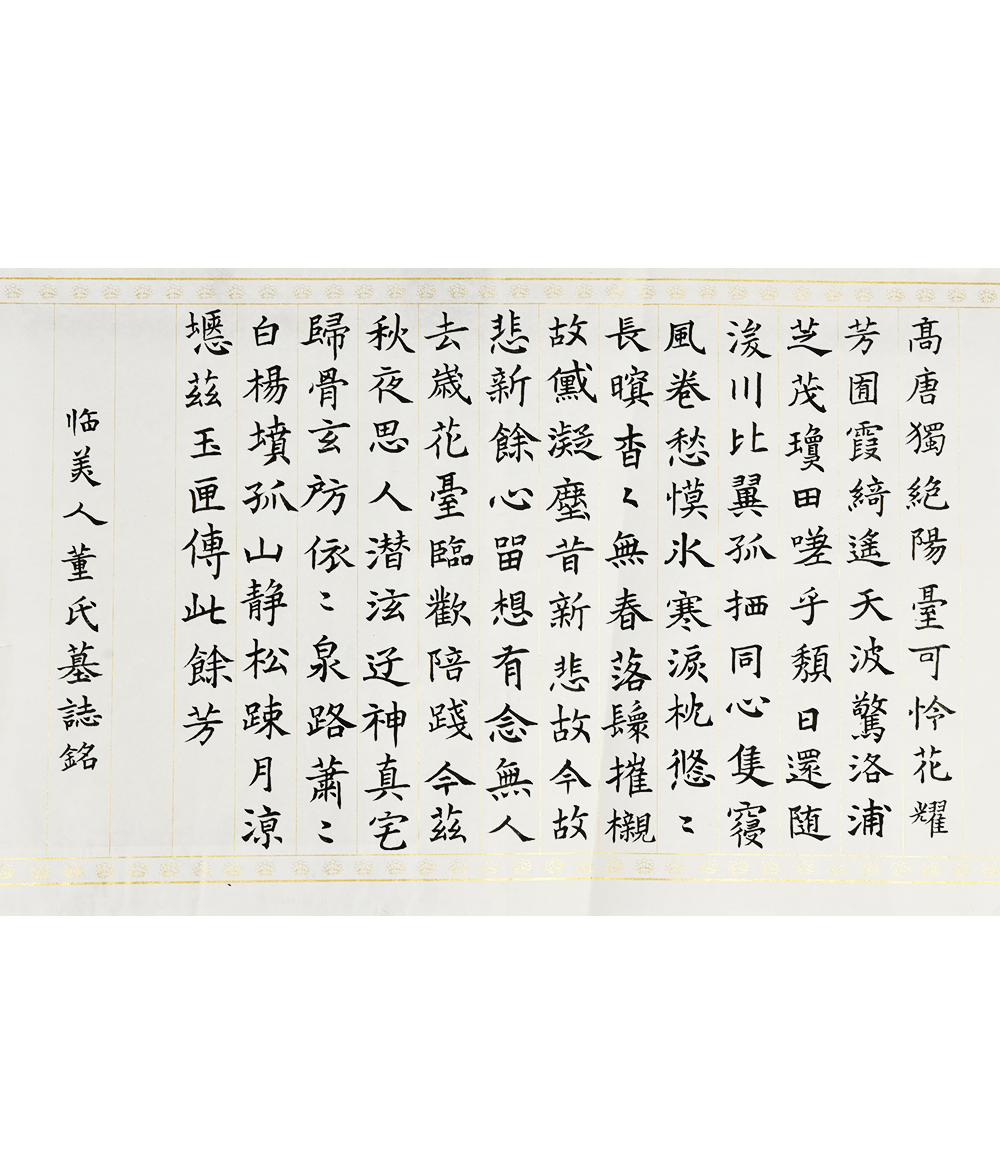 髙唐獨絶陽臺可怜花耀
芳囿霞綺遙天波驚洛浦
芝茂瓊田嗟乎頽日還随
浚川比翼孤栖同心隻寢
風卷愁慔氷寒淚枕悠〻
長暝杳〻無春落鬟摧櫬
故黛凝塵昔新悲故今故
悲新餘心留想有念無人
去歲花臺臨歡陪踐今茲
秋夜思人潜泫迃神真宅
歸骨玄房依〻泉路蕭〻
白楊墳孤山静松踈月涼
瘱茲玉匣傳此餘芳
临美人董氏墓誌銘